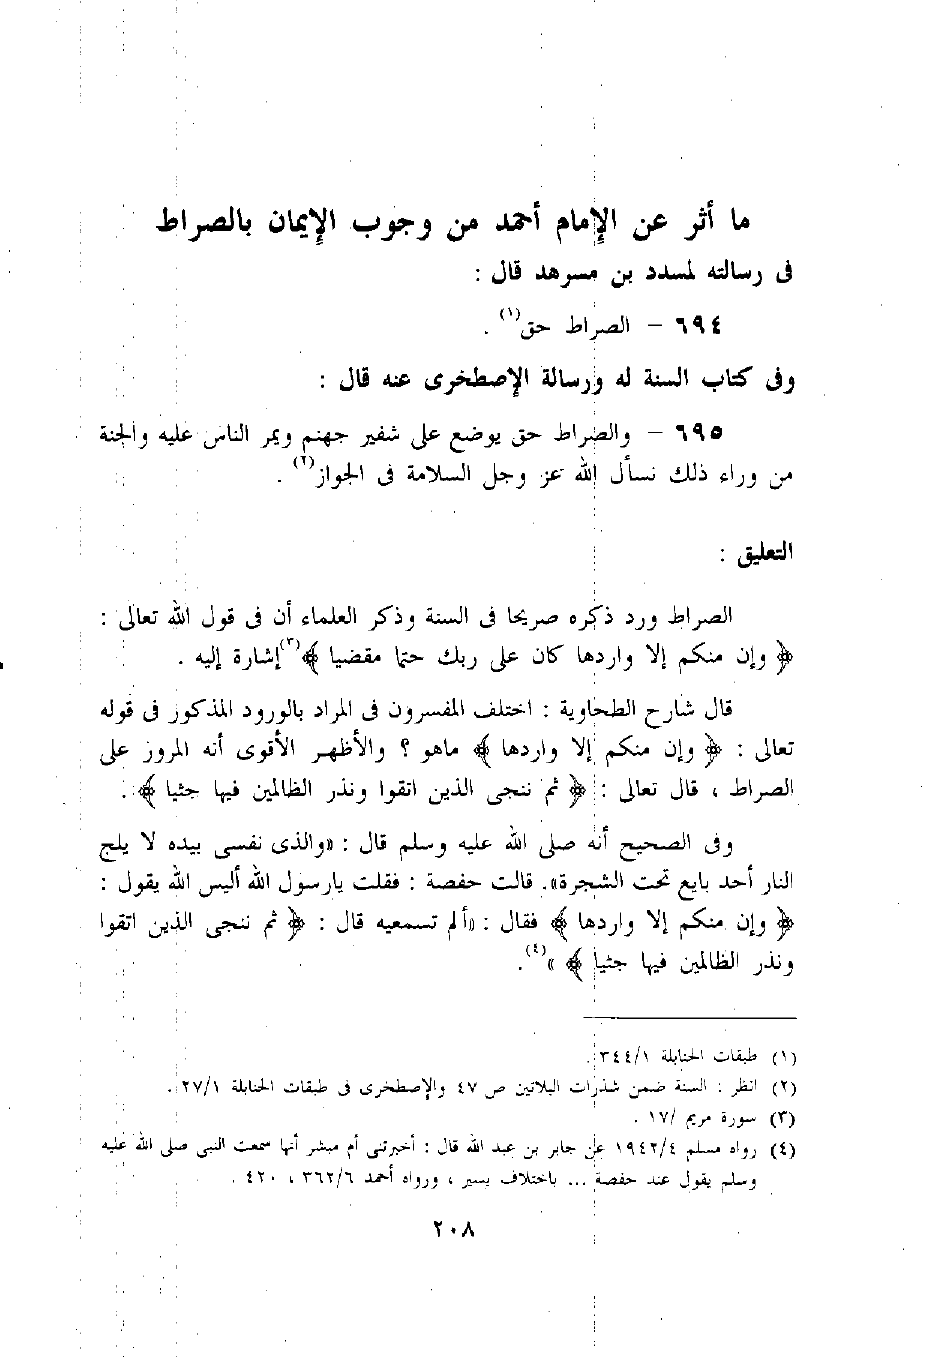 ما أثر عن الإمام أحمد من وجوب الإيمان بالصراط
فى رسالته لمسدد بن مسرهد قال :
٦٩٤ – الصراط حق(١) .
وفى كتاب السنة له ورسالة الإصطخرى عنه قال :
٦٩٥ – والصراط حق يوضع على شفير جهنم ويمر الناس عليه والجنة
من وراء ذلك نسأل الله عز وجل السلامة فى الجواز(٢) .
التعليق :
الصراط ورد ذكره صريحا فى السنة وذكر العلماء أن فى قول الله تعالى :
﴿ وإن منكم إلا واردها كان على ربك حتما مقضيا ﴾(٣) إشارة إليه .
قال شارح الطحاوية : اختلف المفسرون فى المراد بالورود المذكور فى قوله
تعالى : ﴿ وإن منكم إلا واردها ﴾ ماهو ؟ والأظهر الأقوى أنه المرور على
الصراط ، قال تعالى : ﴿ ثم ننجى الذين اتقوا ونذر الظالمين فيها جثيا ﴾ .
وفى الصحيح أنه صلى الله عليه وسلم قال : «والذى نفسى بيده لا يلج
النار أحد بايع تحت الشجرة». قالت حفصة : فقلت يارسول الله أليس الله يقول :
﴿ وإن منكم إلا واردها ﴾ فقال : «ألم تسمعيه قال : ﴿ ثم ننجى الذين اتقوا
ونذر الظالمين فيها جثيا ﴾ »(٤).
(١) طبقات الحنابلة ٣٤٤/١.
(٢) انظر : السنة ضمن شذرات البلاتين ص ٤٧ والإصطخرى فى طبقات الحنابلة ٢٧/١.
(٣) سورة مريم /١٧ .
(٤) رواه مسلم ١٩٤٢/٤ عن جابر بن عبد الله قال : أخبرتنى أم مبشر أنها سمعت النبى صلى الله عليه
وسلم يقول عند حفصة ... باختلاف يسير ، ورواه أحمد ٣٦٢/٦ ، ٤٢٠ .
٢٠٨